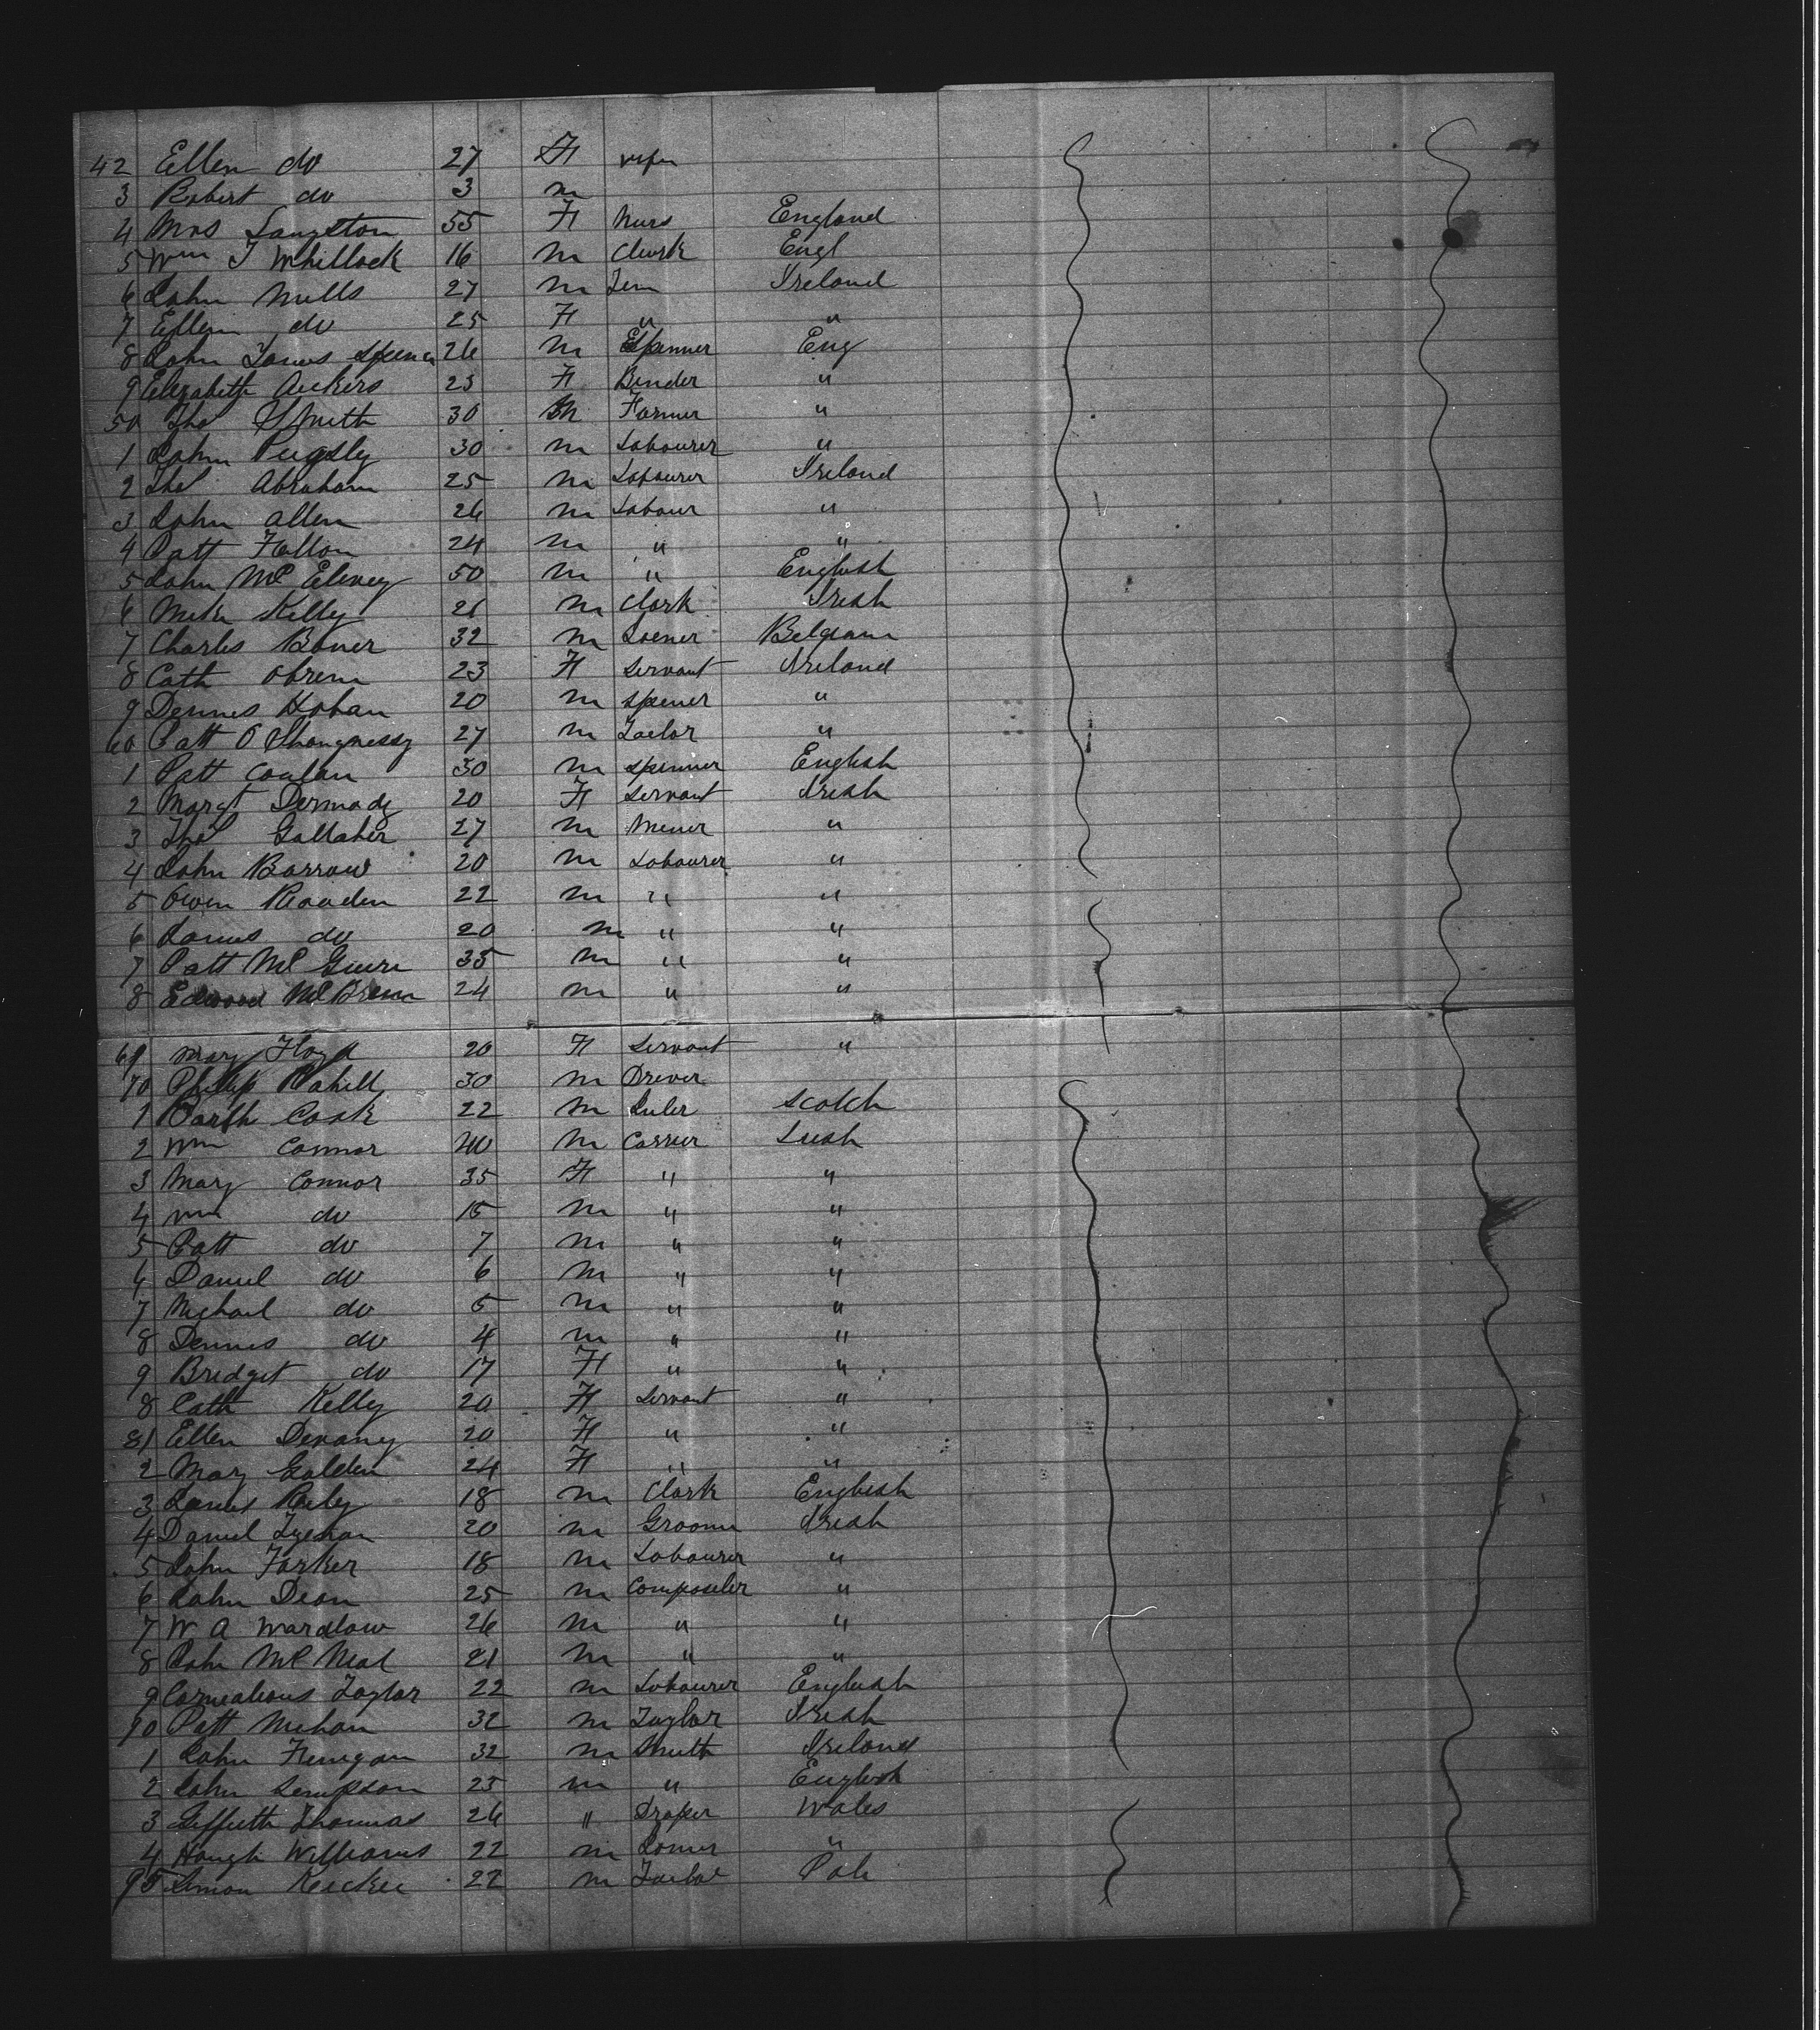 42 Ellen do 27 F wife
3 Robert do 3 m
4 Mrs Langston 55 F Nurs England
5 Wm J Whillock 16 m Clurk Engl
6 John Mills 27 m Ireland
7 Ellen do 25 F " "
8 John James Spencer 26 m Spinner Eng
9 Elizabeth Aickers 23 F Binder "
50 Thos Smith 30 m Farmer "
1 John Pugsly 30 m Labourer "
2 Thos Abraham 25 m Labourer Ireland
3 John Allen 26 m Labour "
4 Patt Fallon 24 m " "
5 John Mc Elevey 50 m " English
6 Mike Kelly 21 m Clark Irish
7 Charles Boner 32 m Joener Belgium
8 Cath Obrien 23 F Servant Ireland
9 Dennis Hoban 20 m Spener "
60 Patt O Shaugnessy 27 m Tailor "
1 Patt Conlan 30 m Spinner English
2 Margt Dermady 20 F Servant Irish
3 Thos Gallaher 27 m Miner "
4 John Barrow 20 m Labourer "
5 Owen Readen 22 m " "
6 James do 20 m " "
7 Patt Mc Guire 35 m " "
8 Edward McBrein 24 m " "
69 Mary Floyd 20 F Servant "
70 Phillip Cahill 30 m Driver
1 Barth Cook 22 m Scotch
2 Wm Connor 40 m Carrier Irish
3 Mary Connor 35 F " "
4 Wm do 15 m " "
5 Patt do 7 m " "
6 Daniel do 6 m " "
7 Michael do 5 m " "
8 Dennis do 4 m " "
9 Bridget do 17 F " "
8 Cath Kelly 20 F Servant "
81 Ellen Devany 20 F " "
2 Mary Golden 24 F " "
3 James Rily 18 m Clark English
4 Daniel 20 m Groom Irish
5 John Farker 18 m Labourer "
6 John Dean 25 m Composeler "
7 W A Wardlow 26 m " "
8 John Mc Neal 21 m " "
9 Cornealious Taylor 22 m Labourer English
90 Patt Mehan 32 m Taylor Irish
1 John Finigan 32 m Smith Ireland
2 John Sempson 23 m " English
3 Giffuth Thomas 26 " Draper Wales
4 Haugh Williams 22 m "
95 Simon 22 m Tailor Pole